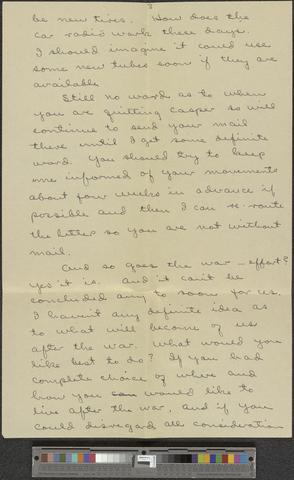 3
be new tires. How does the
car radio work these days.
I should imagine it could use
some new tubes soon if they are
available
Still no word as to when
you are quitting Casper so will
continue to send your mail
there until I get some definite
word. You should try to keep
me informed of your movements
about four weeks in advance if
possible and then I can re-route
the letter so you are not without
mail.
And so goes the war-effort?
Yes it is. And it can't be
concluded any to soon for us.
I haven't any definite idea as
to what will become of us
after the war. What would you
like best to do? If you had
complete choice of where and
how you would like to
live after the war, and if you
could disregard all consideration